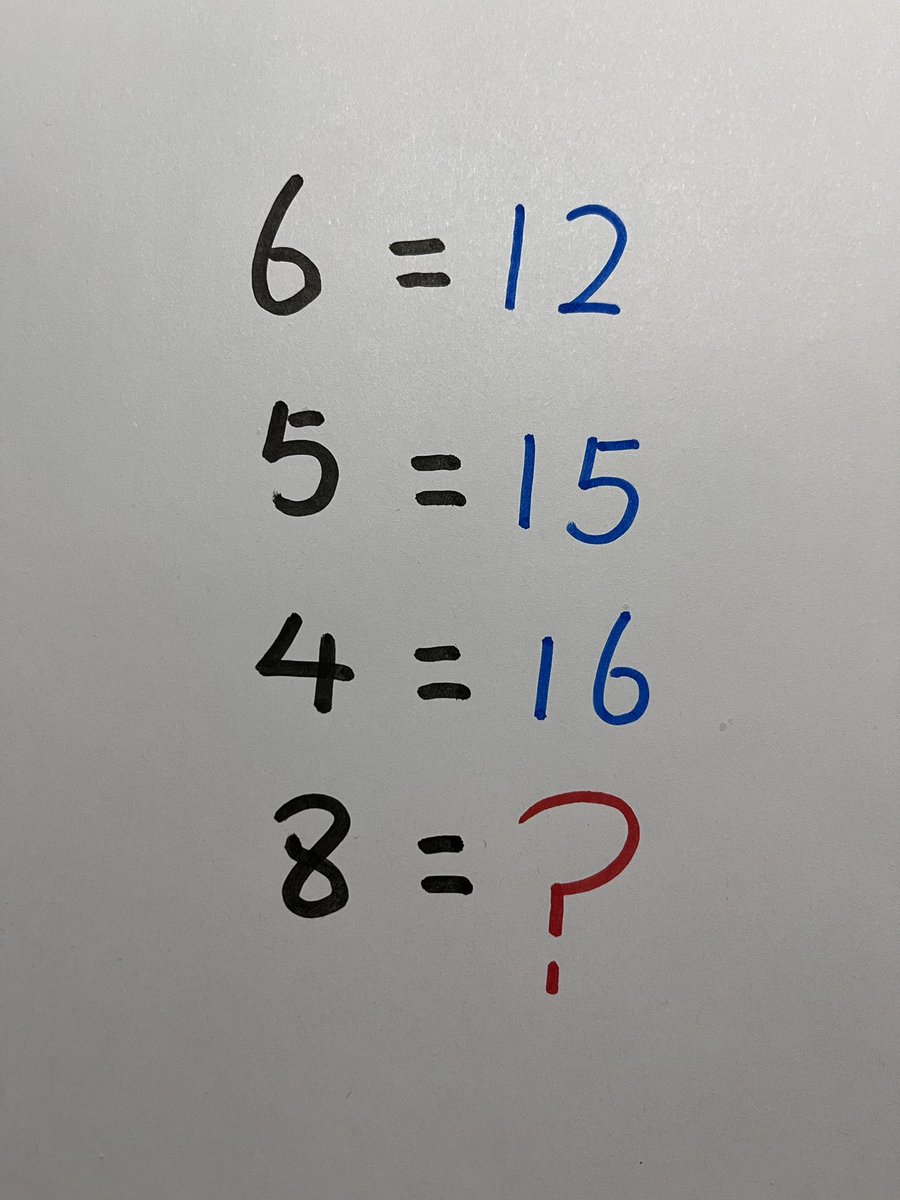 6 = 12
5 = 15
4 = 16
8 = ?